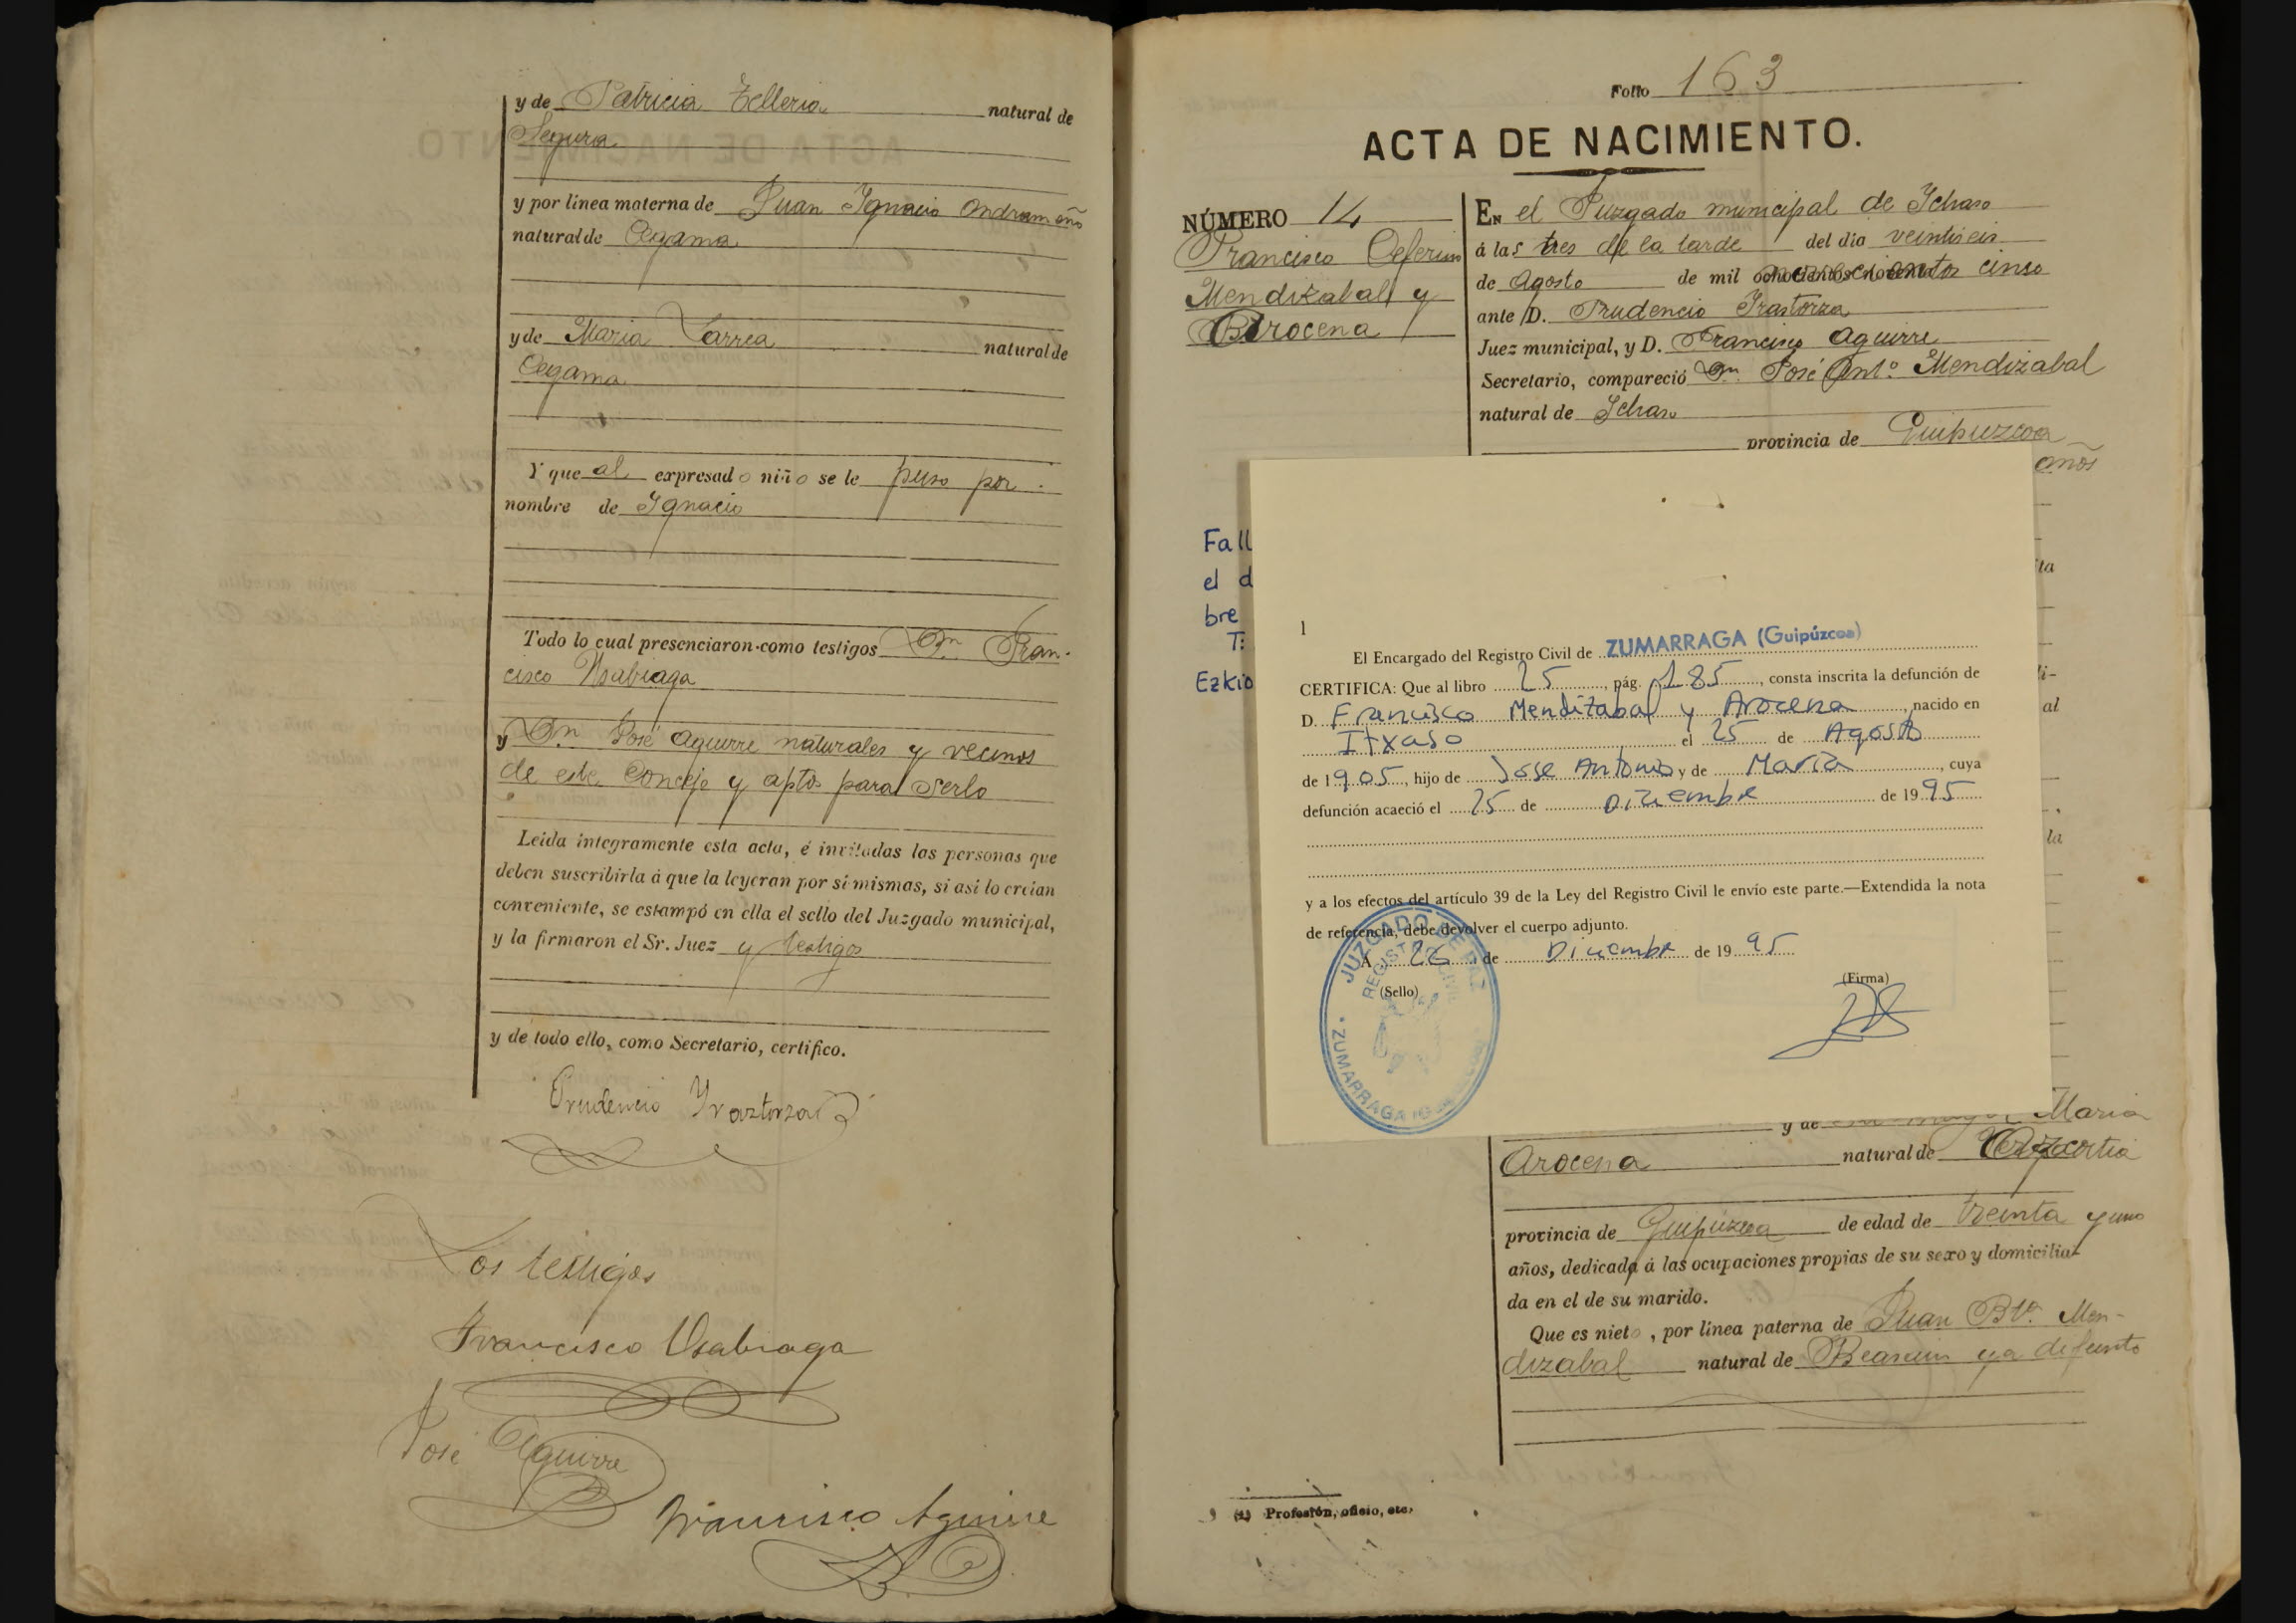 y de Patricia Telleria natural de
Segura
y por linea materna de Juan Ignacio Ondramuño
natural de Cegama
y de Maria Larrea natural de
Cegama
Y que al expresado niño se le puso por
nombre de Ignacio
Todo lo cual presenciaron como testigos Dn Fran-
cisco Usabiaga
y Dn José Aguirre naturales y vecinos
de este Concejo y aptos para serlo
Leída integramente esta acta, é invitadas las personas que
deben suscribirla á que la leyeran por sí mismas, si así lo creían
conveniente, se estampó en ella el sello del Juzgado municipal,
y la firmaron el Sr. Juez y testigos
y de todo ello, como Secretario, certifico.
Prudencio Yraztorza
Los testigos
Francisco Usabiaga
José Aguirre
Francisco Aguirre
Folio 163
ACTA DE NACIMIENTO.
NÚMERO 14
Francisco Ceferino
Mendizabal y
Arocena
En el Juzgado municipal de Ichaso
á las tres de la tarde del dia veintiseis
de Agosto de mil novecientos cinco
ante D. Prudencio Irastorza
Juez municipal, y D. Francisco Aguirre
Secretario, compareció Dn. José Anto. Mendizabal
natural de Ichaso
provincia de Guipuzcoa
años
Fall
el d
bre
T:
Ezkio
ta
li-
al
la
1
El Encargado del Registro Civil de ZUMARRAGA (Guipúzcoa)
CERTIFICA: Que al libro 25, pág. 185, consta inscrita la defunción de
D. Francisco Mendizabal y Arocena, nacido en
Itxaso el 25 de Agosto
de 1905, hijo de Jose Antonio y de Maria, cuya
defunción acaeció el 25 de Diciembre de 1995
y a los efectos del artículo 39 de la Ley del Registro Civil le envío este parte.—Extendida la nota
de referencia, debe devolver el cuerpo adjunto.
A 26 de Diciembre de 1995
(Sello)
(Firma)
JUZGADO DE PAZ
REGISTRO CIVIL
ZUMARRAGA
y de su mujer Maria
Arocena natural de
provincia de Guipúzcoa de edad de treinta y uno
años, dedicada á las ocupaciones propias de su sexo y domicilia-
da en el de su marido.
Que es nieto, por línea paterna de Juan Bta. Men-
dizabal natural de Beasain ya difunto
(1) Profesión, oficio, etc.